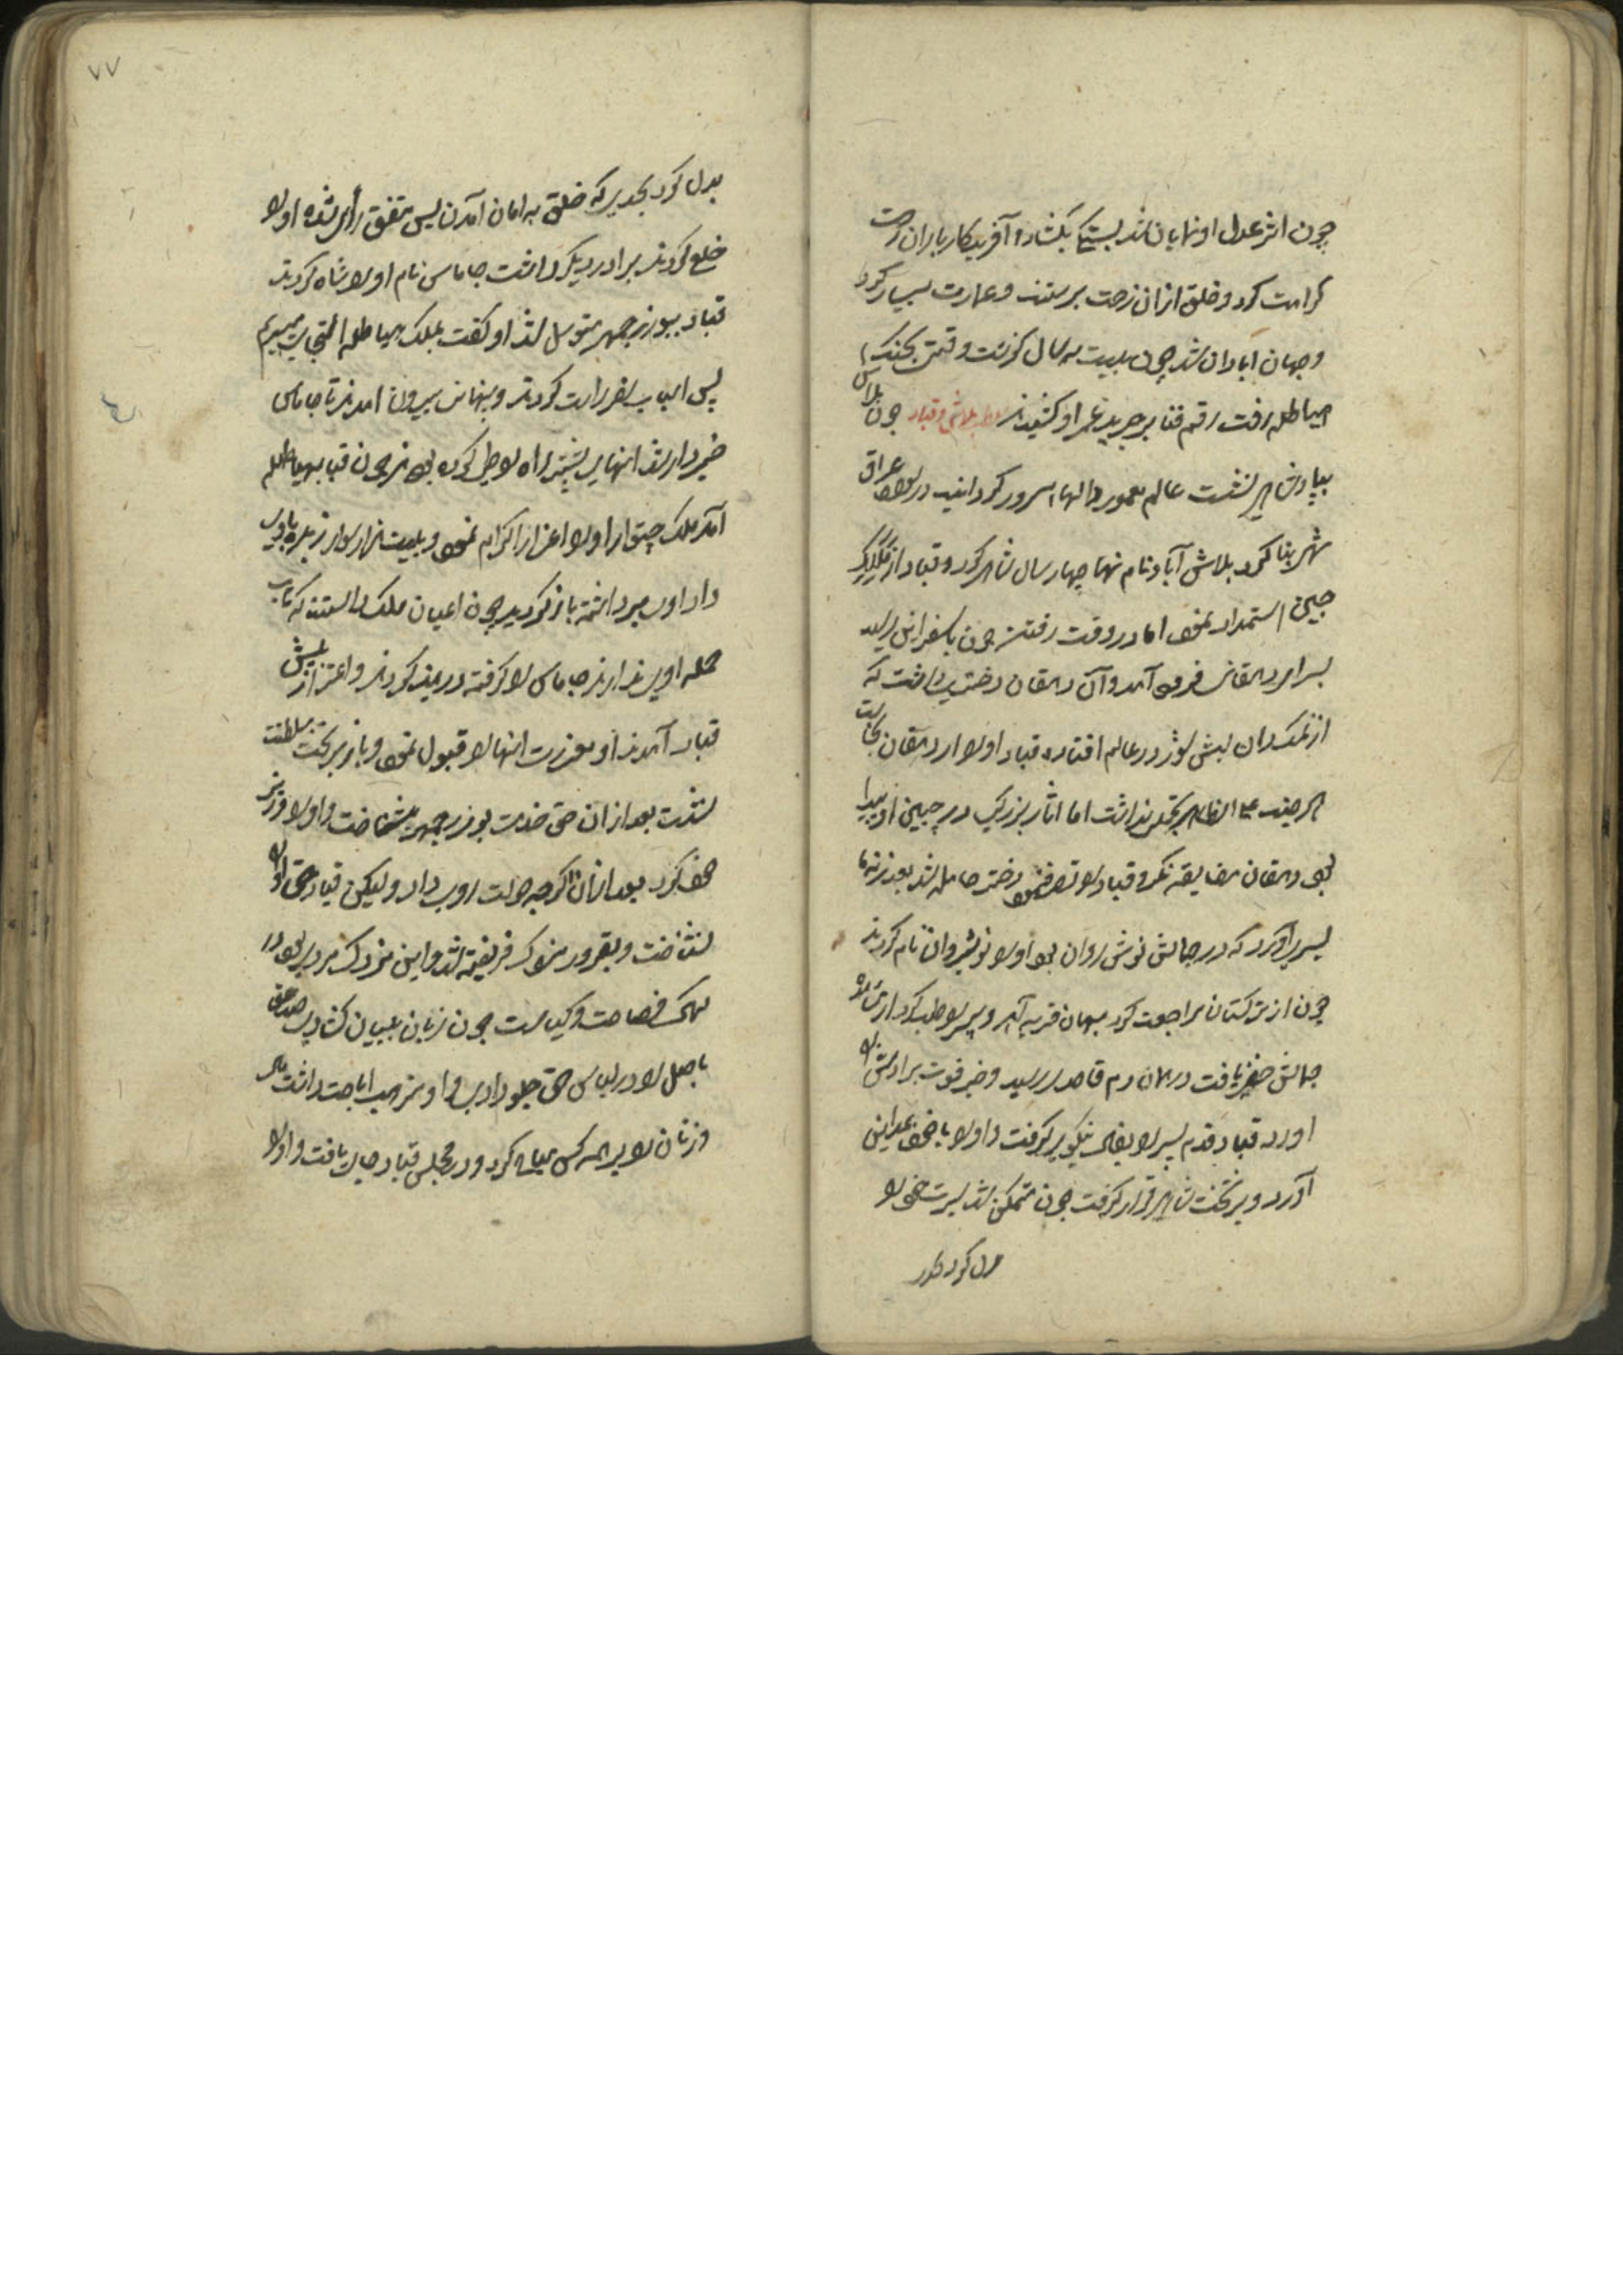 چون اثر عدل او نمایان شد بستکی بکشاد و آفریدکار باران رحمت
کرامت کرد و خلق ازان زحمت برستند و عمارت بسیار کرد
و جهان ابادان شد چون بیست سه سال کزشت وقتی بجنک
هیاطله رفت رقم فنا بر جریده عمر او کشیدند بلاش و قباد چون بلاش
بپادشاهی نشست عالم معمور و دلها مسرور کردانید در سواد عراق
شهری بنا کرد بلاش آباد نام نهاد چهار سال شاهی کرد و قباد از
چین استمداد نمود اما در وقت رفتن چون باسفراین رسید
بسرای دهقانی فرود آمد و آن دهقان دختری داشت که
از نمکدان لبش شور در عالم افتاده قباد او را از دهقان بخواست
هرچند علی الظاهر تجملی نداشت اما اثار بزرکی در جبین او پیدا
بود دهقان مضایقه نکرد قباد را تصرف نمود دختر حامله شد بعد نه ماه
پسری آورد که در جمالش نوش روان بود او را نوشیروان نام کردند
چون از ترکستان مراجعت کرد بهمان قریه آمد و پسر را طلب کرد از
جمالش یافت در همان دم قاصد رسید و خبر فوت برادرش
اورد قباد قدم پسر را بفال نیکو برکرفت و او را با خود بمداین
آورد و بر تخت شاهی قرار کرفت چون متمکن شد سیرت خود را
بدل کرد بحدی
۷۷
بدل کرد بحدی که خلق به امان آمدن پس متفق رأی شده او را
خلع کردند برادر دیکر داشت جاماس نام او را شاه کردند
قباد ببوزرجمهر متوسل شد او کفت بملک هیاطله التجا میبریم
پس اسباب سفر راست کردند و پنهانی بیرون امدند تا جاماس
خبردار شد اینها بیشتر راه را طی کرده بودند چون قباد بهیاطله
آمد ملک او را اعزاز اکرام نمود و بیست هزار سوار
داد او را برداشته باز کردید چون اعیان ملک دانستند که تاب
حمله او ندارند جاماس را کرفته در بند کردند و
قباد آمدند او معذرت انها را قبول نمود و باز بر تخت سلطنت
نشست بعد ازان حق خدمت بوزرجمهر بشناخت و او را وزیر
خود کرد بعد ازان اکرچه دولت روی داد ولیکن قباد حق او را
نشناخت و بغرور مزدک فریفته شد و این مزدک مردی بود در
فصاحت و کیاست چون زبان ببیان کشادی صد
باطل را در لباس حق جلو دادی و او مذهب اباحت داشت مال
و زنان را بر همه کس مباح کرد و در مجلس قباد جای یافت و او را